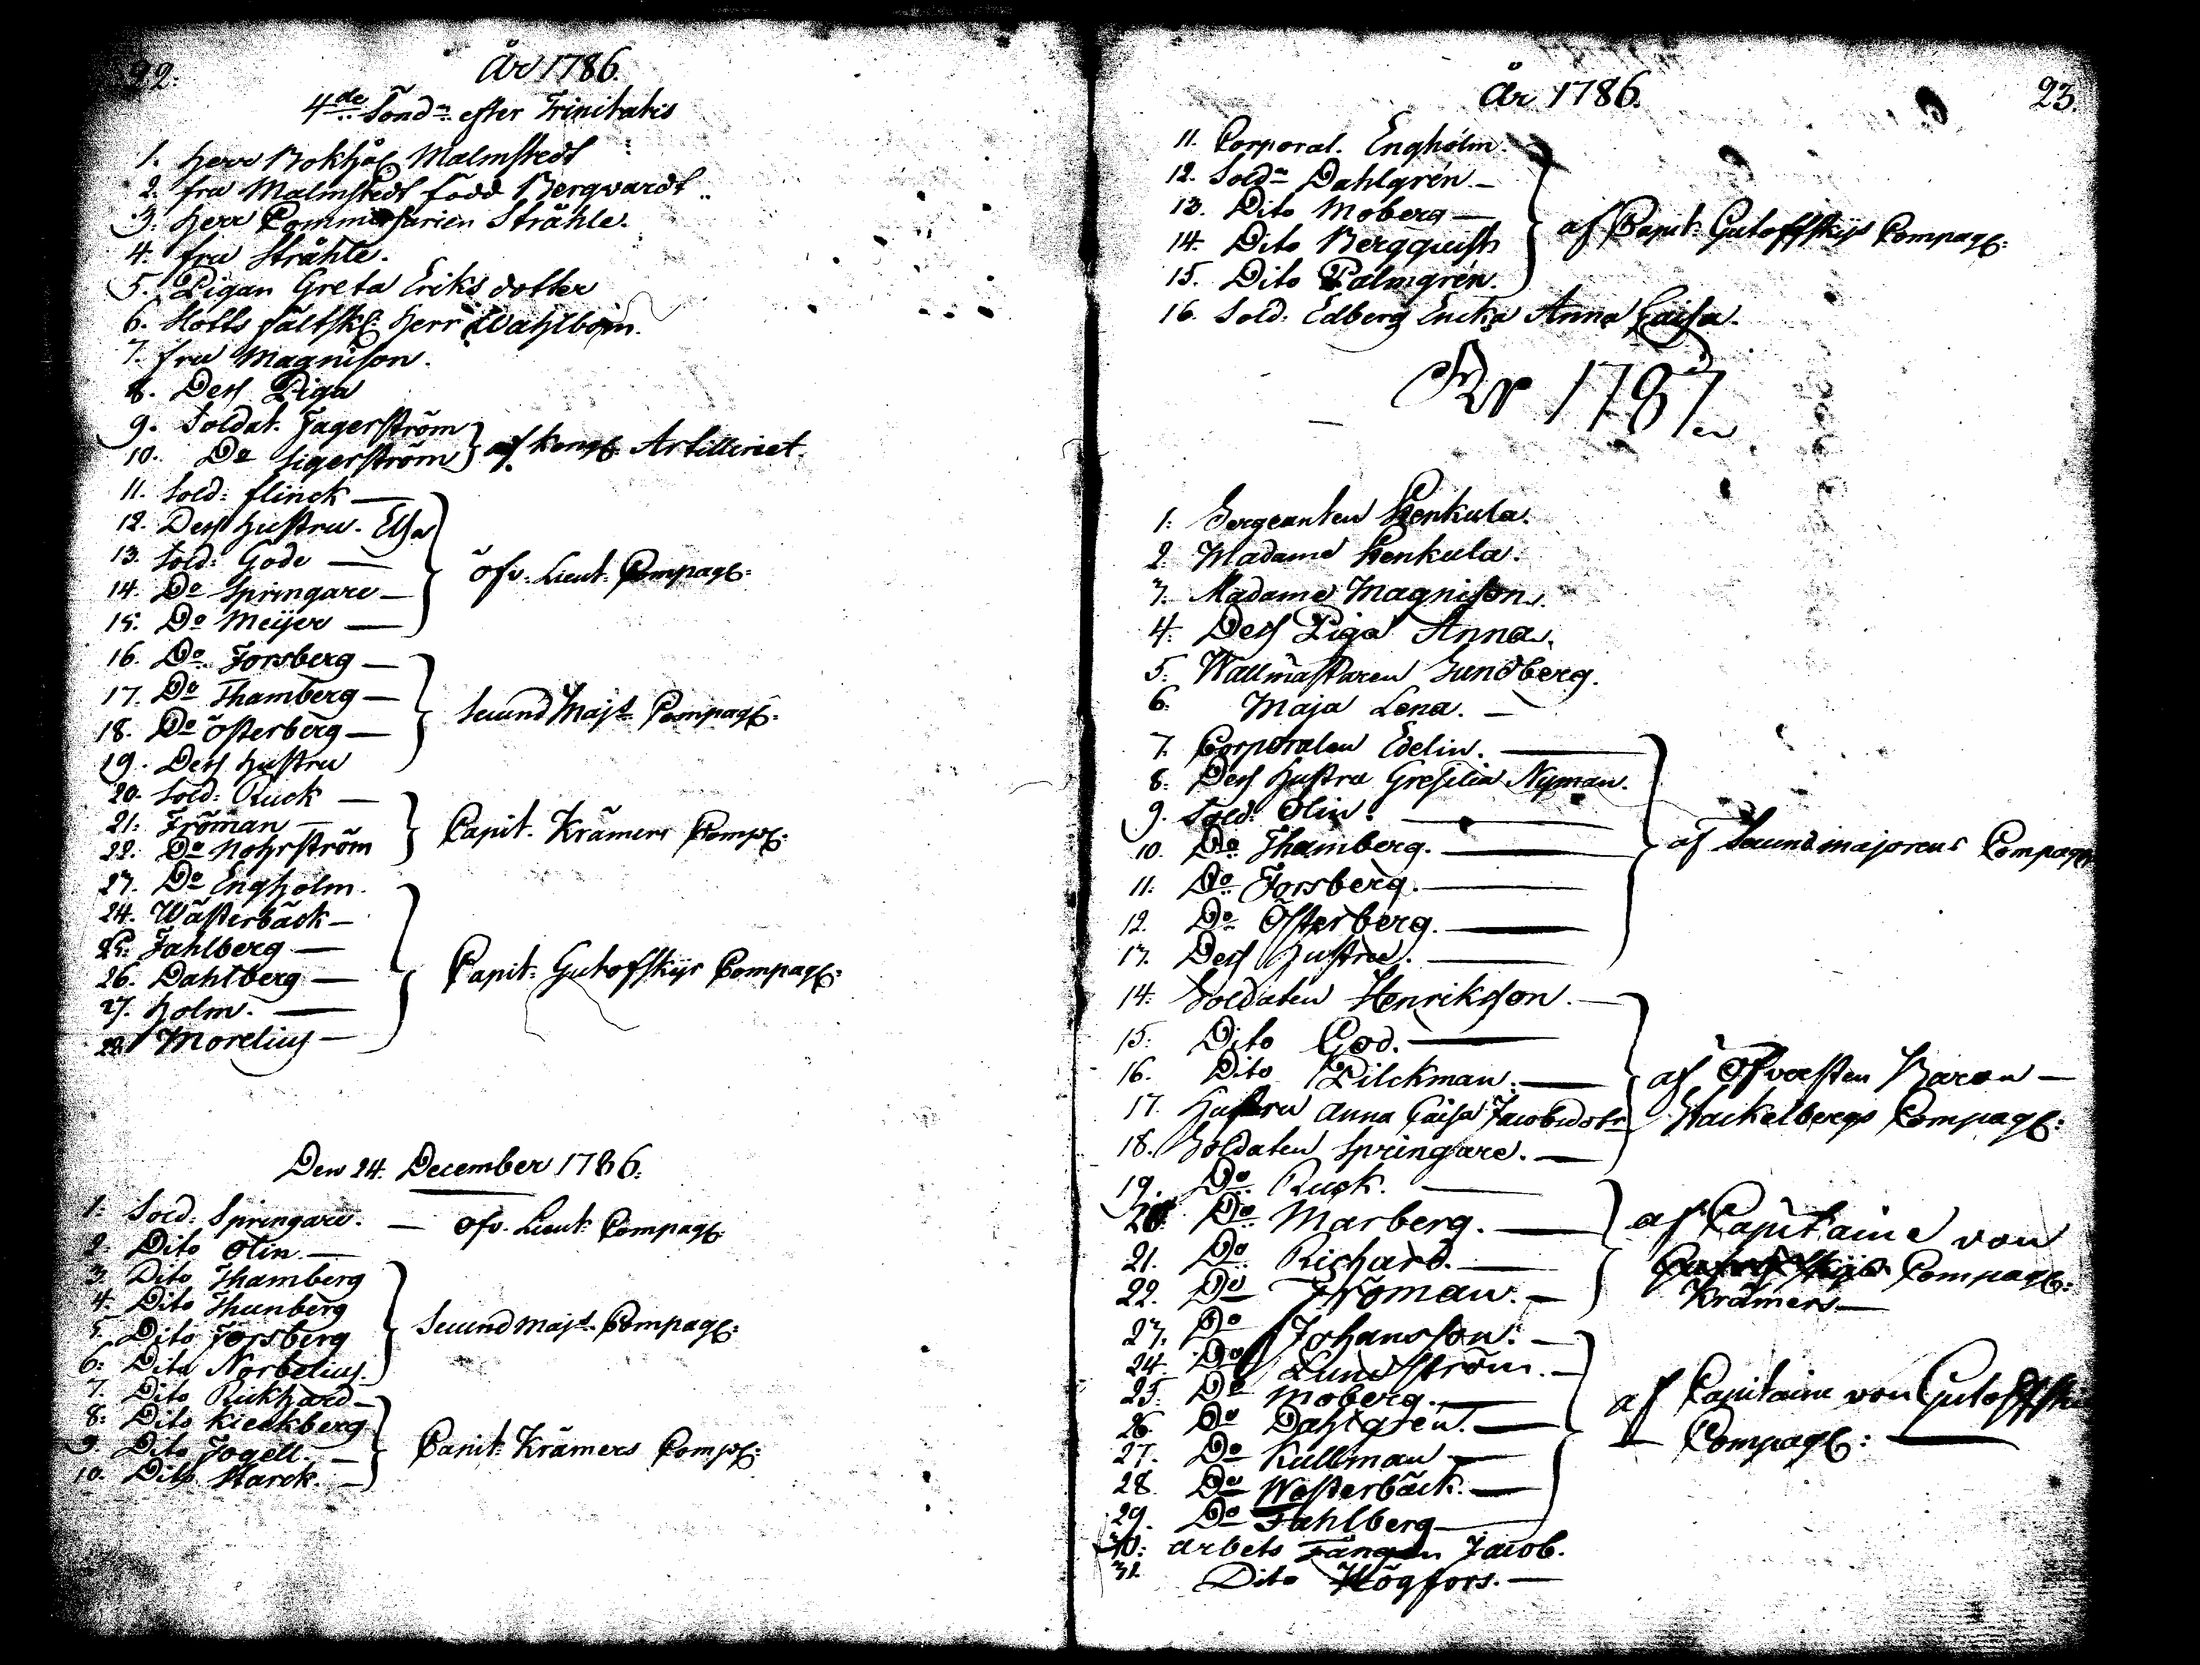 22.
År 1786.
4de Sönd. efter Trinitatis
1. Herr Bokhål Malmstedt
2. fru Malmstedt född Bergvardt
3. Herr Commissarien Strähle.
4. fru Strähle.
5. Pigan Greta Eriks dotter
6. Slotts fältsk: Herr Wahlbom.
7. fru Magnison.
8. Dess Piga
9. Soldat. Fagerström
10. Do Sigerström } af kongl. Artilleriet.
11. Sold: flinck —
12. Dess hustru. Elsa
13. Sold: Gode —
14. Do Springare —
15. Do Meijer —
öfv: Lieut: Compagl:
16. Do Forsberg —
17. Do Thamberg —
18. Do Österberg —
19. Dess hustru
Secund Majs Compagl:
20. Sold: Ruck —
21. Fröman —
22. Do Nohrström
Capit. Krämers Comp:
23. Do Engholm.
24. Wästerbäck —
25. Fahlberg —
26. Dahlberg —
27. Holm. —
28. Morelius —
Capit: Gutofskijs Compagl:
Den 24. December 1786.
1. Sold: Springare. — Öfv. Lieut: Compagl:
2. Dito Olin —
3. Dito Thamberg
4. Dito Thunberg
5. Dito Forsberg
6. Dito Norbelius.
Secund Majs Compagl:
7. Dito Rickhard —
8. Dito Kieckberg
9. Dito Fogell. —
10. Dito Starck. —
Capit: Krämers Comp:
År 1786.
23.
11. Corporal. Engholm.
12. Sold. Dahlgrén. —
13. Dito Moberg —
14. Dito Bergquist
15. Dito Palmgrén.
af Capit: Gutoffskijs Compagl:
16. Sold: Edberg Encka Anna Caisa.
År 1787
1. Sergeanten Henkula.
2. Madame Henkula.
3. Madame Magnison.
4. Dess Piga Anna.
5. Wallmästaren Sundberg.
6. Maja Lena. —
7. Corporalen Edelin. —
8. Dess hustru Gresilia Nyman.
9. Sold: Olin. —
10. Do Thamberg. —
11. Do Forsberg. —
12. Do Österberg. —
13. Dess hustru. —
af Secundmajorens Compagl
14. Soldaten Henriksson. —
15. Dito God. —
16. Dito Pilckman. —
17. Hustru Anna Caisa Jacobsdotr
18. Soldaten Springare. —
af Öfversten Baron —
Stackelbergs Compagl:
19. Do Ruck. —
20. Do Marberg. —
21. Do Richard. —
22. Do Fröman. —
af Capitaine von
Compagl:
Krämers —
23. Do Johansson. —
24. Do Lundström. —
25. Do Moberg. —
26. Do Dahlgrén. —
27. Do Kullman —
28. Do Westerbäck. —
29. Do Fahlberg —
af Capitaine von Gutoffski
— Compagl: —
30. arbets Fången Jacob.
31. Dito Högfors. —